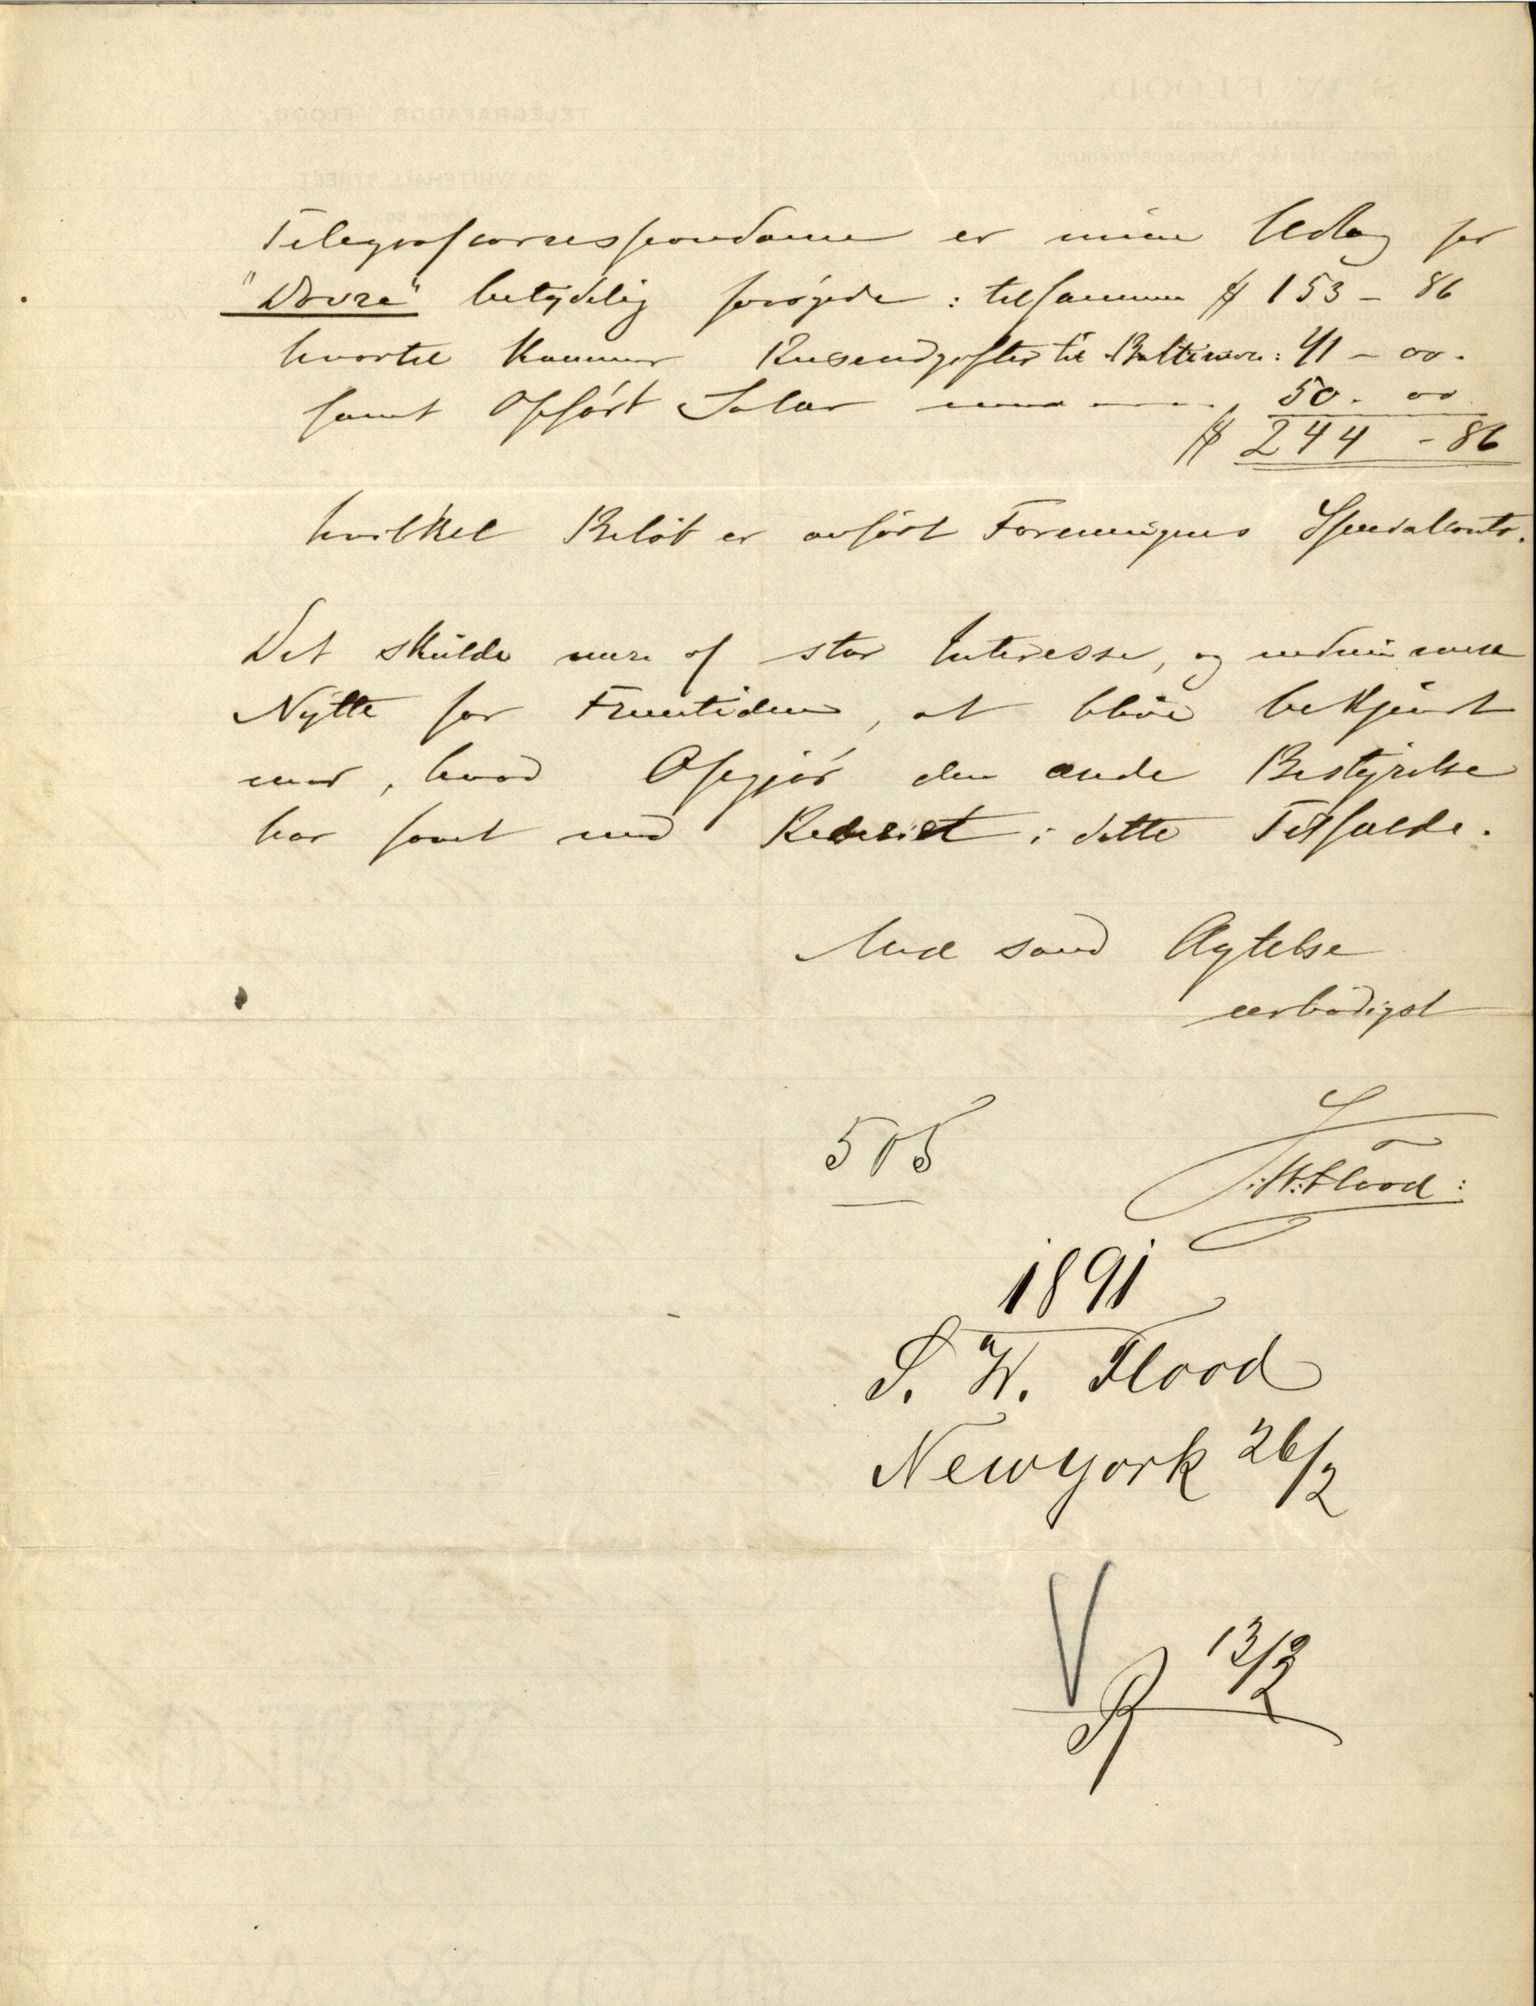 Telegrafcorrespondance er mine Udlæg for
"Dovre" betydelig forøgede : tilsammen $ 153 - 86
hvortil kommer Reiseudgifter til Baltimore : 41 - 00.
samt Opført Salær 50. 00
$ 244 - 86
hvilket Beløb er anført Foreningens Specialconto.
Det skulde være af stor Interesse, og
Nytte for Fremtiden, at blive bekjendt
med, hvad Opgjør den ærede Bestyrelse
har havt med Rederiet i dette Tilfælde.
Med sand Agtelse
ærbødigst
S. W. Flood :
505
1891
S. W. Flood
Newyork 26/2
V
13/3